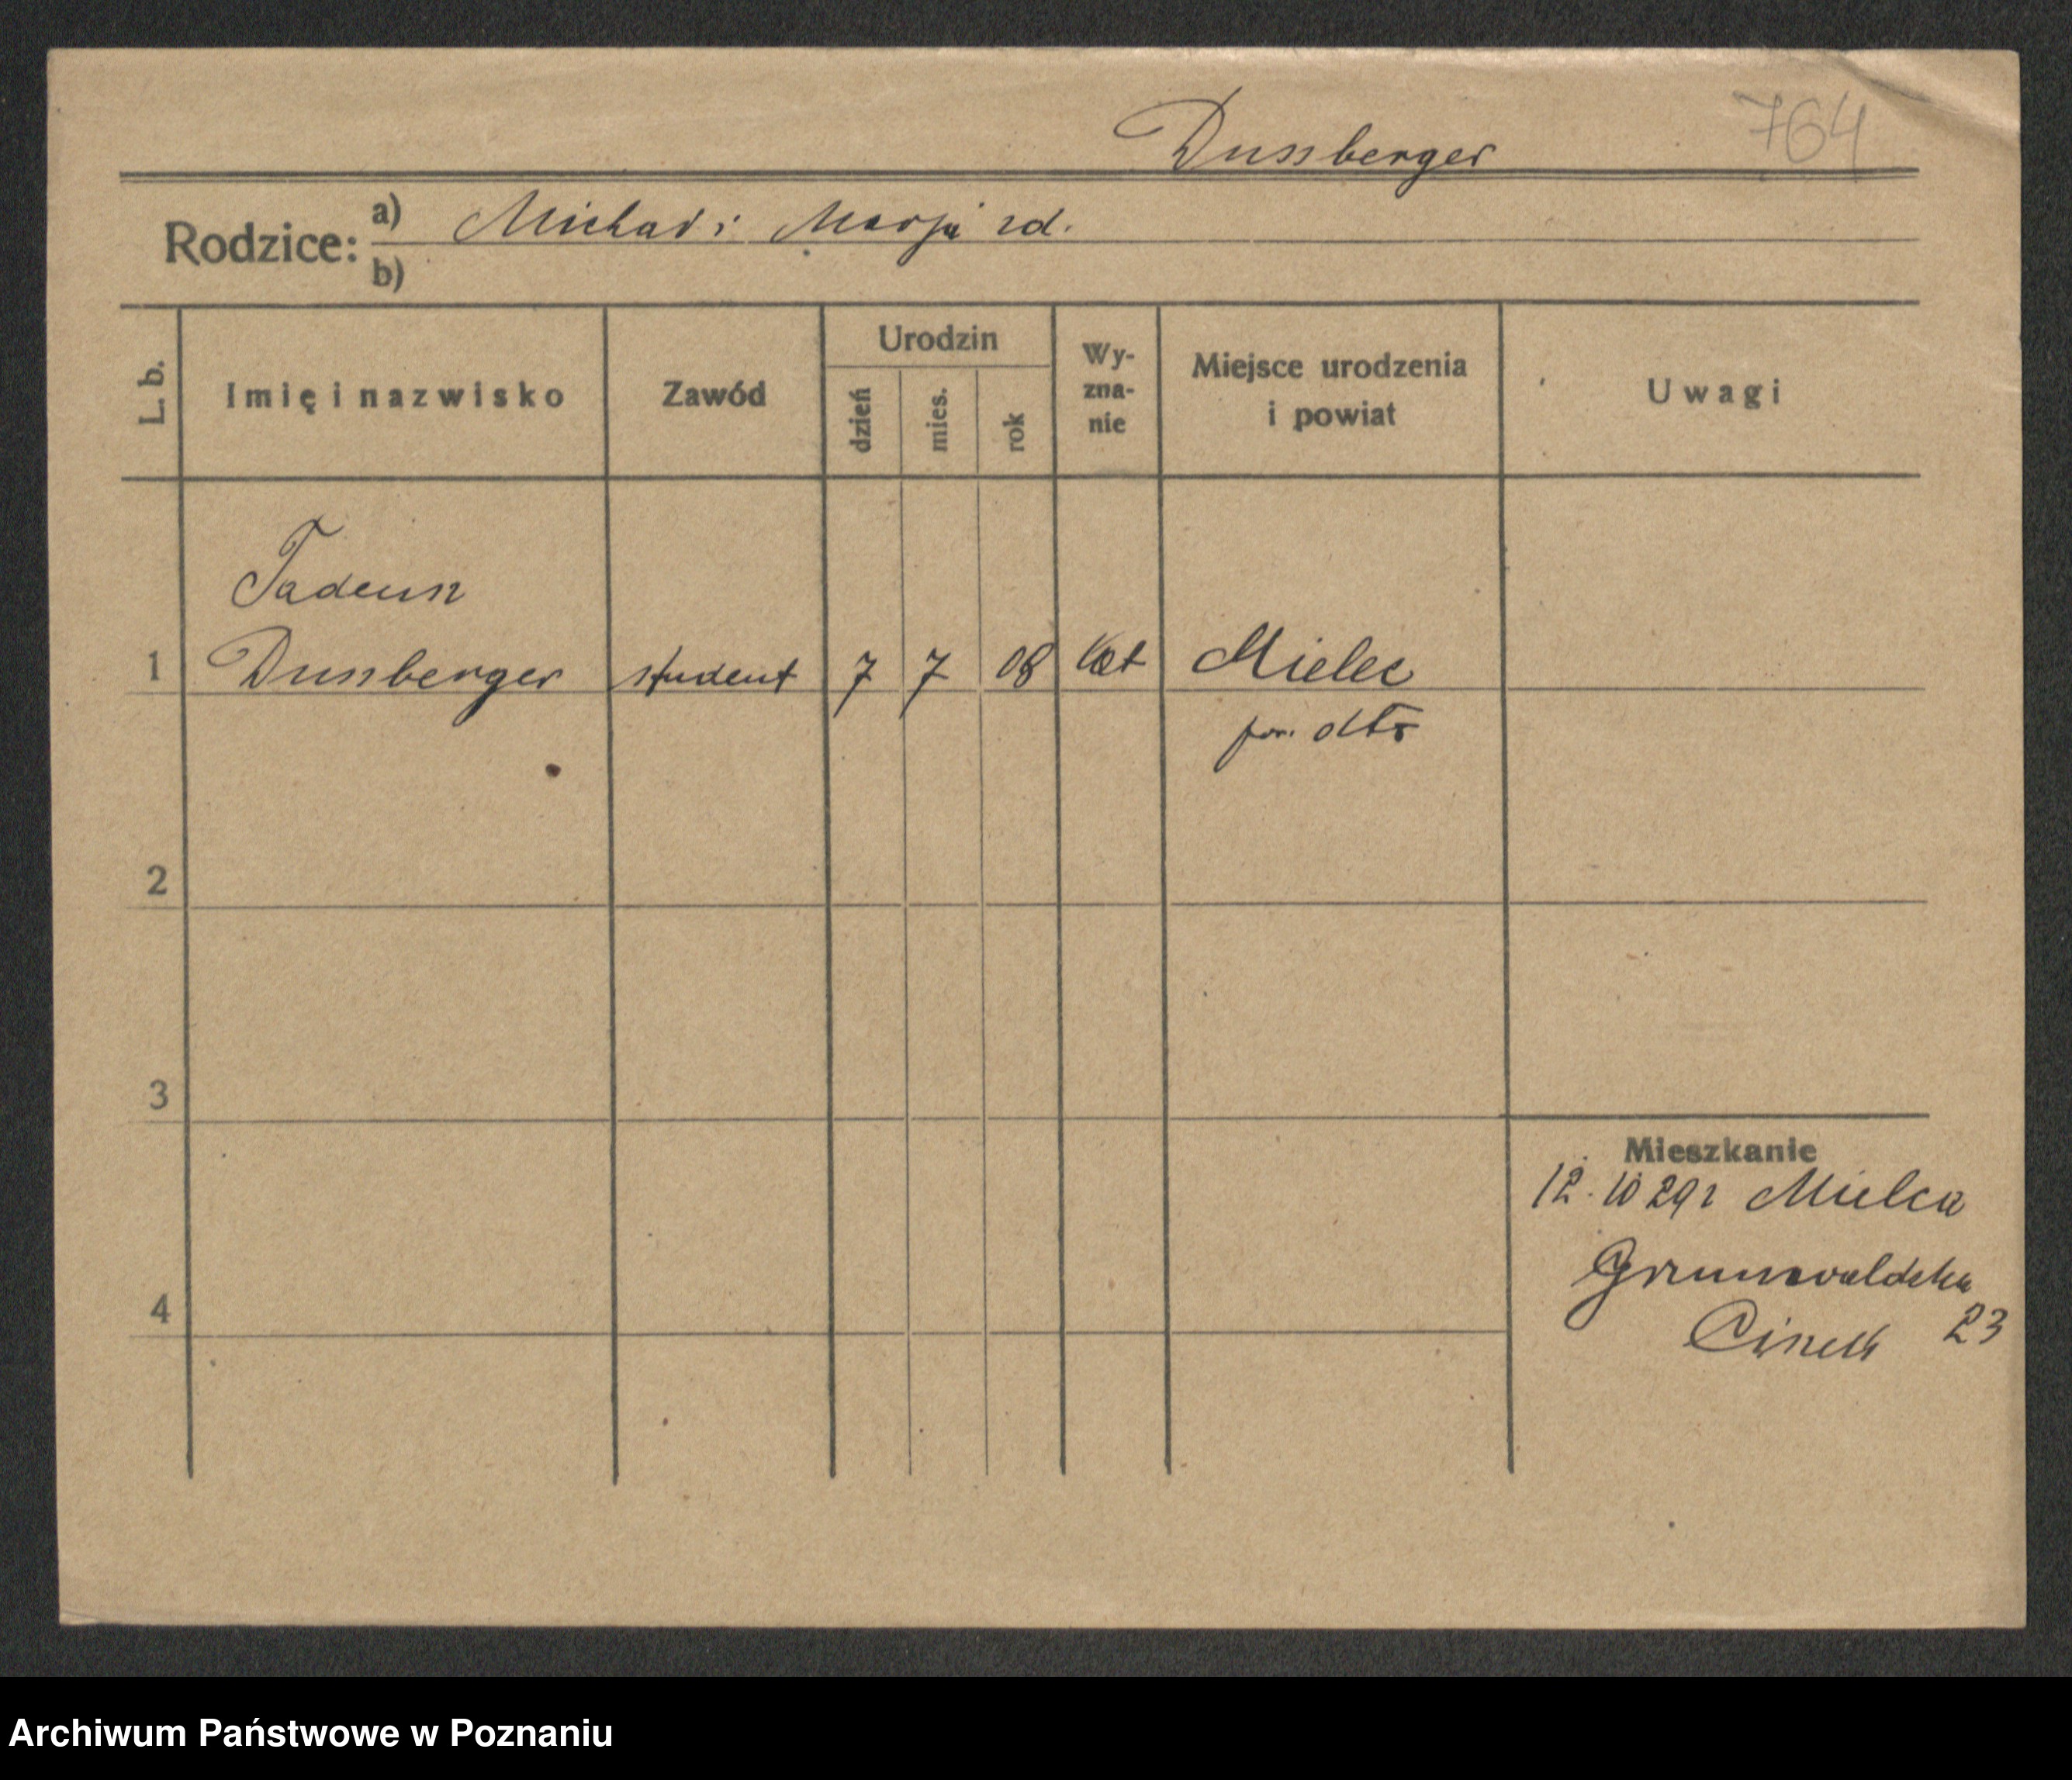 Dussberger 764
Rodzice: a) Michał i Marja zd.
b)
L. b. Imię i nazwisko Zawód Urodzin dzień mies. rok Wy-zna-nie Miejsce urodzenia i powiat Uwagi
Tadeusz
1 Dussberger student 7 7 08 kat Mielec
pow. dtto
2
3
Mieszkanie
12.10 29 z Mielca
Grunwaldzka
4 23
Archiwum Państwowe w Poznaniu